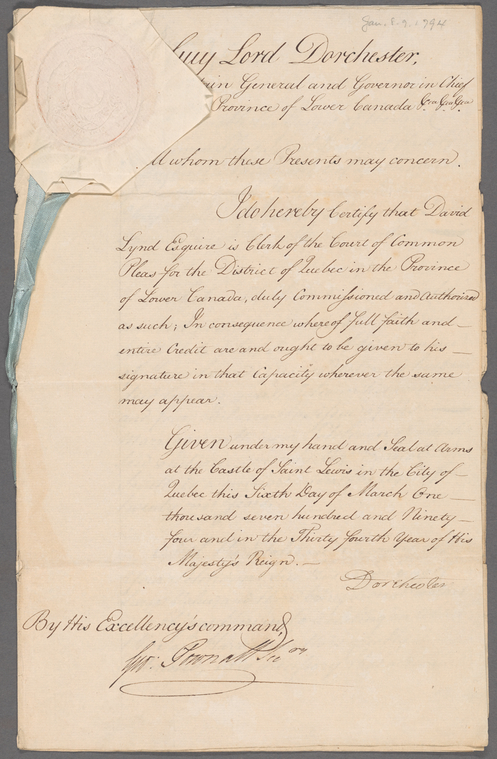 Jan. 8. 9. 1794
Guy Lord Dorchester,
tain General and Governor in Chief
Province of Lower Canada &ca &ca &ca
All whom these Presents may concern.
I do hereby Certify that David
Lynd Esquire is Clerk of the Court of Common
Pleas for the District of Quebec in the Province
of Lower Canada, duly Commissioned and Authorized
as such; In consequence whereof full faith and —
entire Credit are and ought to be given to his —
signature in that Capacity wherever the same
may appear.
Given under my hand and Seal at Arms
at the Castle of Saint Lewis in the City of —
Quebec this Sixth Day of March One —
thousand seven hundred and Ninety —
four and in the Thirty fourth Year of His
Majesty's Reign. —
Dorchester
By His Excellency's command,
Geo: Pownall Secry